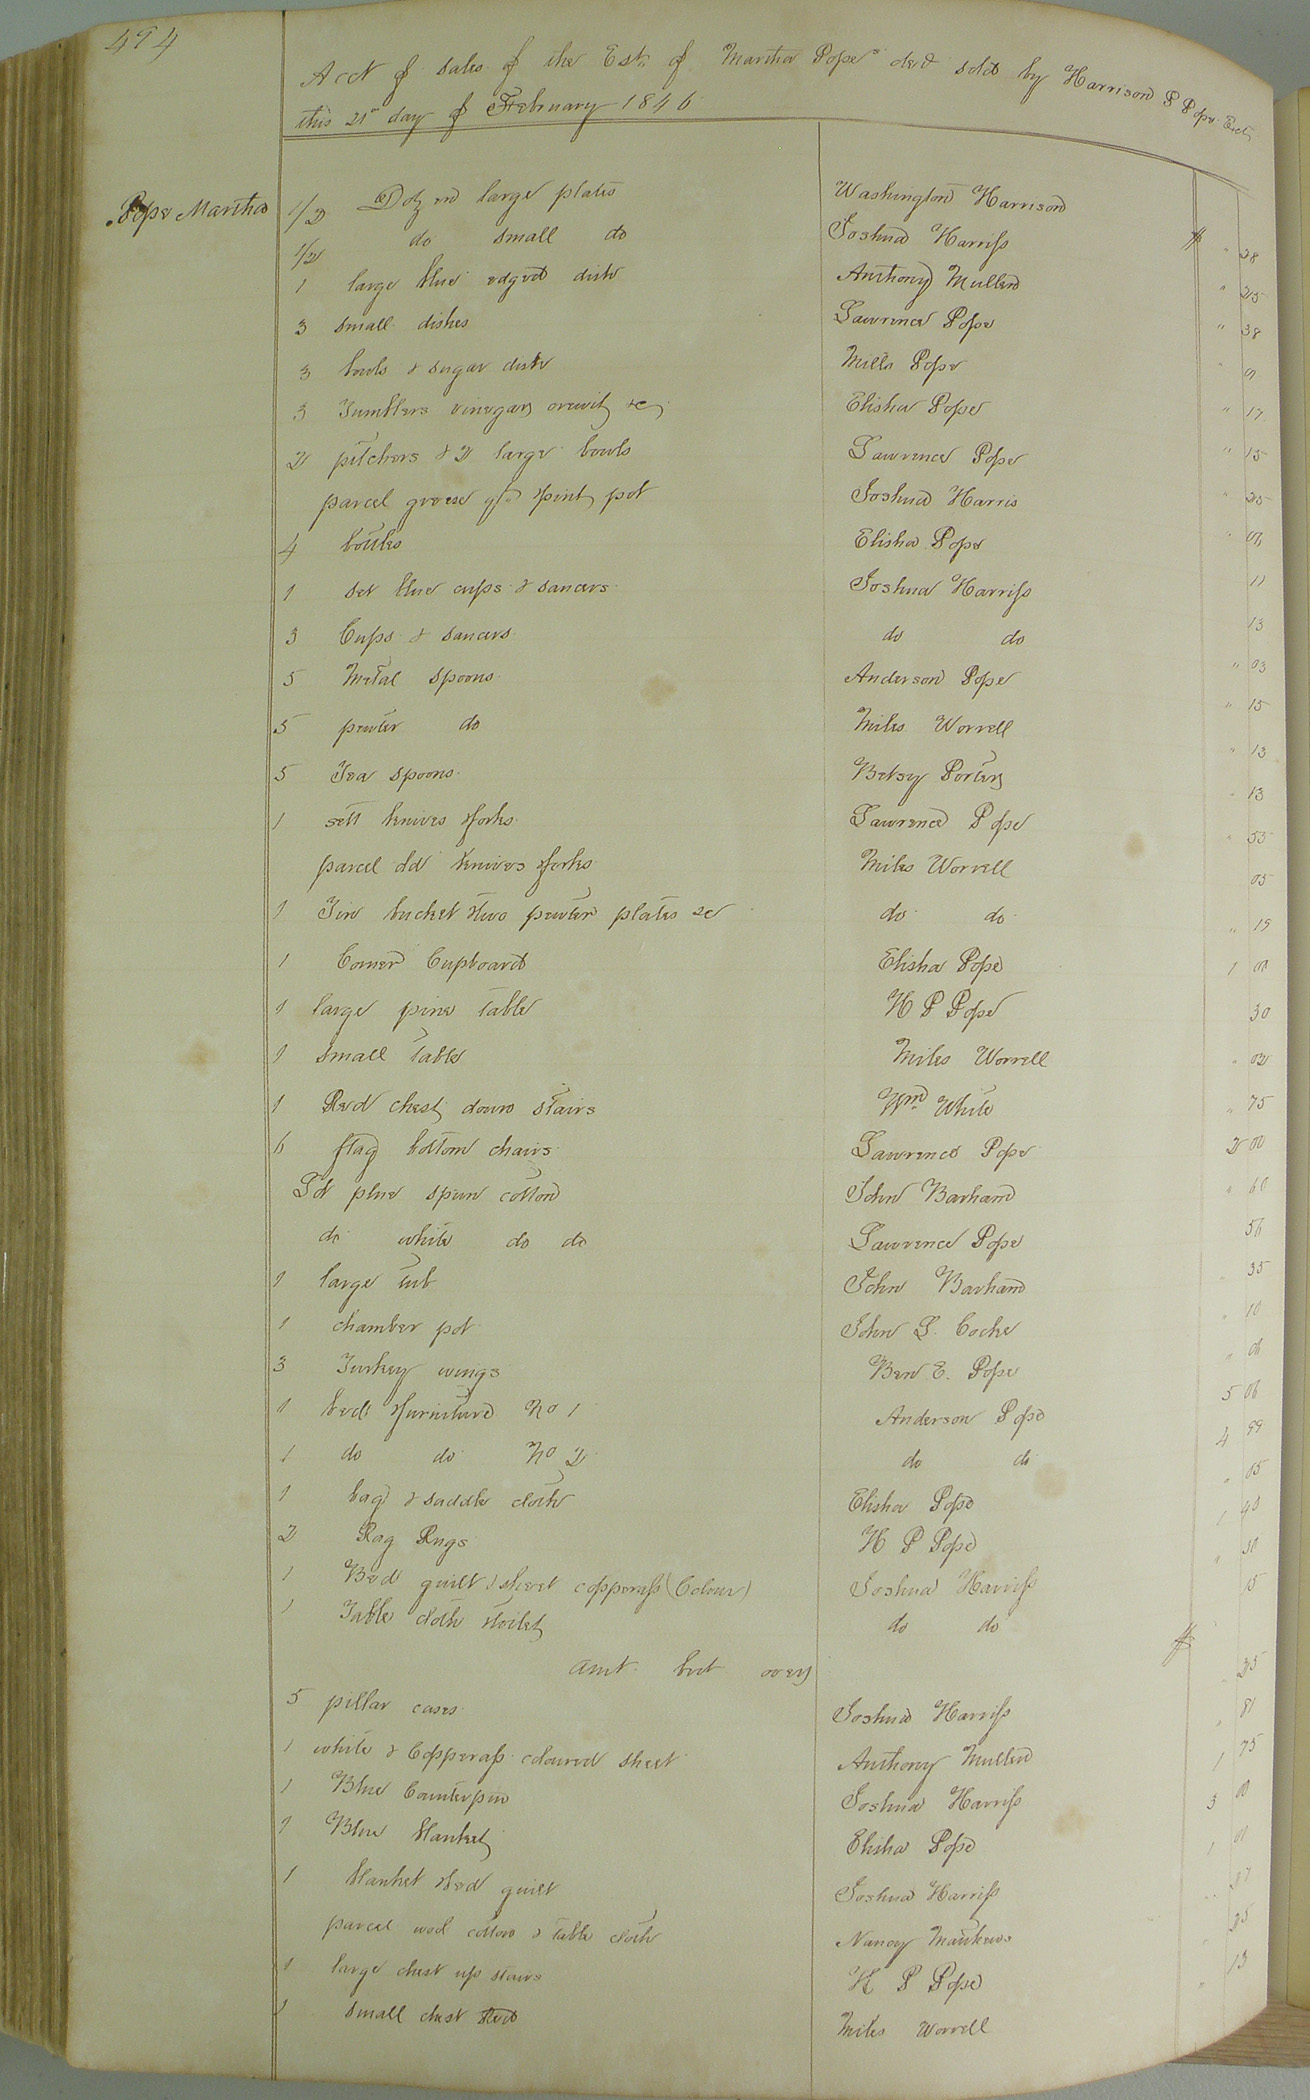 494
Acct of sales of the Est. of Martha Pope decd sold by Harrison P Pope Exct
this 21st day of February 1846
Pope Martha
1/2 Dozen large plates Washington Harrison $ " 28
1/2 do small do Joshua Harriss " 25
1 large blue edged dish Anthony Mullen " 38
3 small dishes Lawrence Pope
3 bowls & sugar dish Mills Pope " 17
3 Tumblers vinegar cruit &c Elisha Pope " 15
2 pitchers & 2 large bowls Lawrence Pope " 25
parcel pint pot Joshua Harris " 06
4 bottles Elisha Pope 11
1 set blue cups & saucers Joshua Harriss 13
3 Cups & saucers do do " 03
5 Metal spoons Anderson Pope " 15
5 pewter do Miles Worrell " 13
5 Tea spoons Betsy Porter " 13
1 sett knives &forks Lawrence Pope " 55
parcel old knives &forks Miles Worrell 05
1 Tin bucket &two pewter plates &c do do " 15
1 Corner Cupboard Elisha Pope 1 00
1 large pine table H P Pope 30
1 small table Miles Worrell " 02
1 Red chest down stairs Wm White " 75
6 flag bottom chairs Lawrence Pope 2 00
Lot blue spun cotton John Barham " 60
do white do do Lawrence Pope 56
1 large tub John Barham " 35
1 chamber pot John L. Cocke " 10
3 Turkey wings Ben E. Pope " 06
1 bed &furniture No 1 Anderson Pope 5 06
1 do do No 2 do do 4 99
1 bag & saddle cloth Elisha Pope " 05
2 Rag Rugs H P Pope 1 40
1 Bed quilt 1 sheet copperass (Colour) Joshua Harriss " 50
1 Table cloth &toilet do do 15
amt. brt over $
5 pillar cases Joshua Harriss " 25
1 white & Copperass coloured sheet Anthony Mullen " 81
1 Blue Counterpin Joshua Harriss 1 75
1 Blue blanket Elisha Pope 3 00
1 blanket &bed quilt Joshua Harriss 1 00
parcel wool cotton & table cloth Nancy Matthews
1 large chest up stairs H P Pope " 25
1 small chest Red Miles Worrell " 13